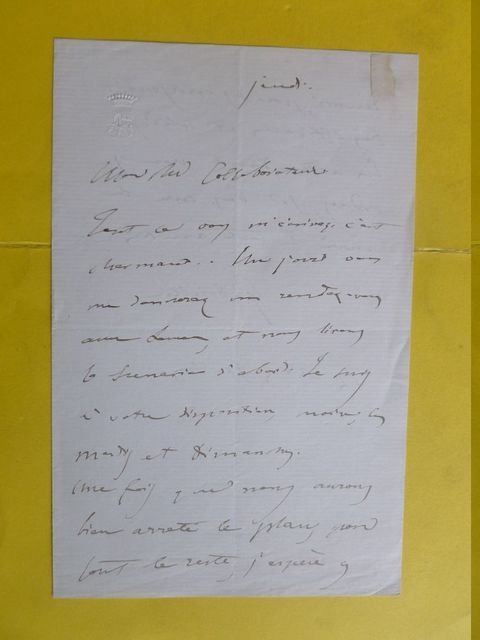 jeudi.
Mon cher Collaborateur
Tout ce que vous m'écrivez c'est
charmant.. Un jour vous
me donnerez un rendez-vous
avec et nous lirons
le Scenario d'abord. Je suis
à votre disposition, moins les
mardis et Dimanches.
Une fois que nous aurons
bien arrêté le plan, pour
tout le reste, j'espère